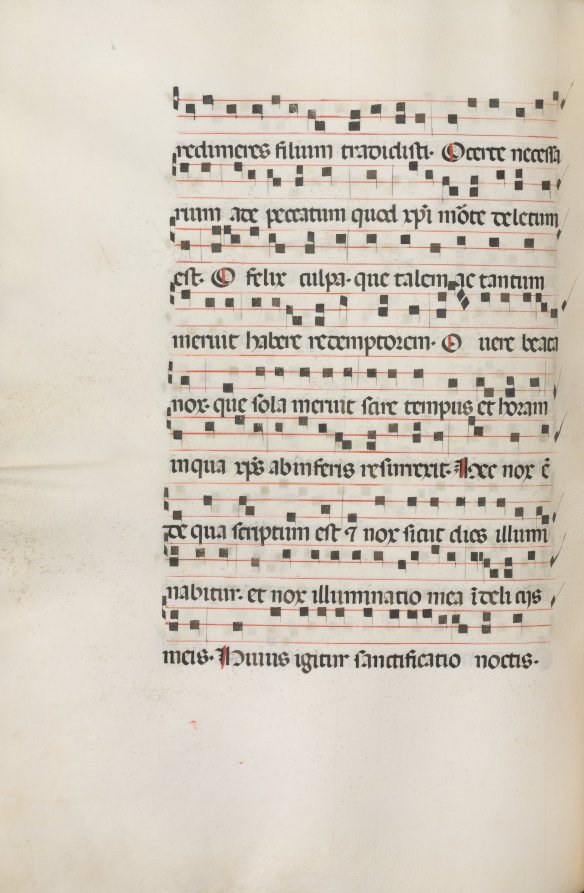 redimeres filium tradidisti. O certe necessa
rium ade peccatum quod xp̄i mōte deletum
est. O felix culpa. que talem ac tantum
meruit habere redemptorem. O uere beata
nox. que sola meruit scire tempus et horam
in qua xp̄s ab inferis resurrexit. Hec nox ē
de qua scriptum est ⁊ nox sicut dies illumi
nabitur. et nox illuminatio mea ī deliciis
meis. Huius igitur sanctificatio noctis.